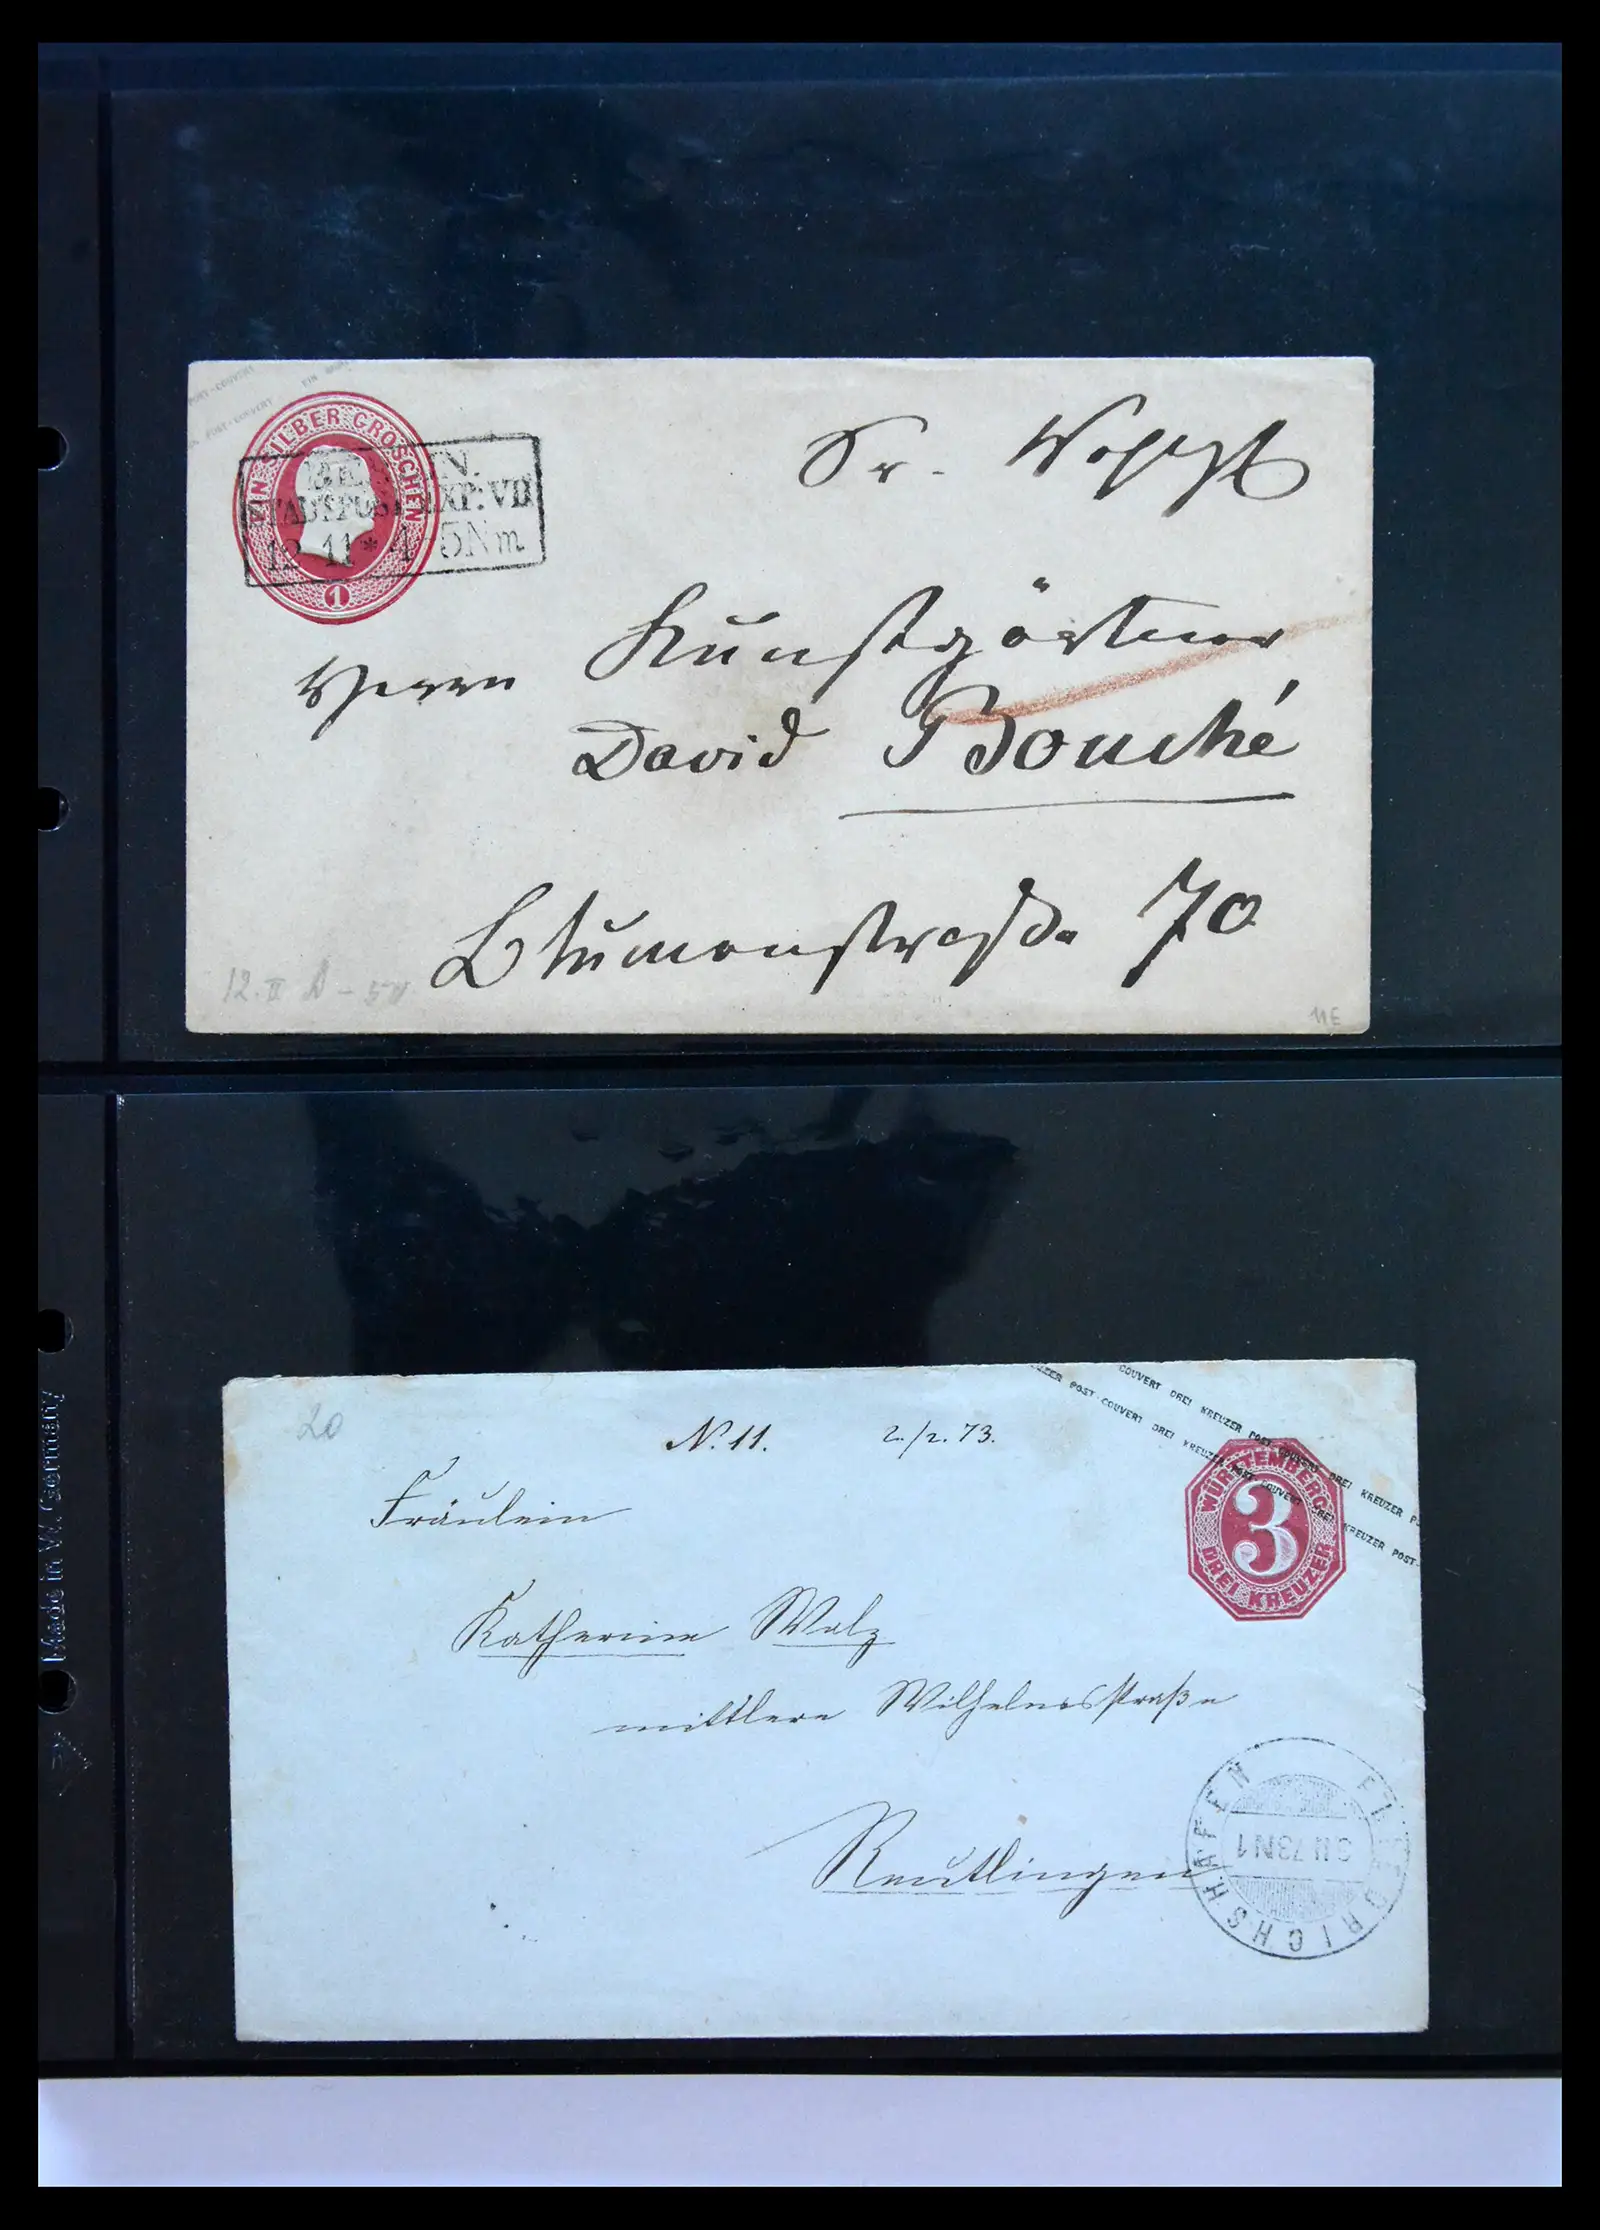 POST-COUVERT EIN
POST-COUVERT
EIN SILBER GROSCHEN
1
STADTPOST-EXP: VII
12 11 * 4-5 Nm
Sr. Wohlgb
Herrn Kunstgärtner
David Bouché
Blumenstraße 70
11E
20
N. 11. 2./2. 73.
COUVERT DREI KREUZER POST-COUVERT DREI KREUZER
KREUZER POST-COUVERT DREI KREUZER POST-COUVERT DREI KREUZER POST-
WÜRTTEMBERG
3
DREI KREUZER
Fräulein
Katharine Walz
mittlere Wilhelmsstraße
Reutlingen
FRIEDRICHSHAFEN
3 II 73 N 1
Made in W. Germany